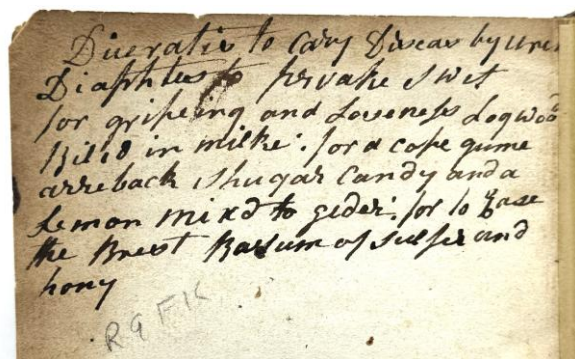 Diuratis to Cary Diseas by uren
Diaphtes to provake swit
for gripeing and Loseness Logwood
Biled in milke: for a cofe gume
arreback shugar Candy and a
Lemon mixd to geder: for to Ease
the Brest Barsum of sulfer and
hony
R9F1K